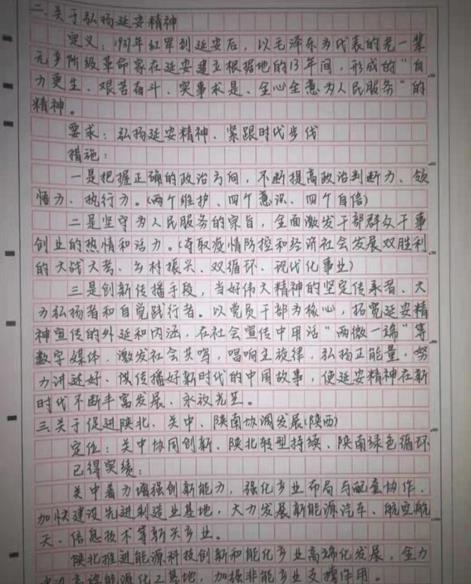 二.关于弘扬延安精神
定义:1935年红军到延安后,以毛泽东为代表的老一辈
无产阶级革命家在延安建立根据地的13年间,形成的“自
力更生、艰苦奋斗、实事求是、全心全意为人民服务”的
精神。
要求:弘扬延安精神、紧跟时代步伐
措施:
一是把握正确的政治方向,不断提高政治判断力、领
悟力、执行力。(两个维护、四个意识、四个自信)
二是坚守为人民服务的宗旨,全面激发干部群众干事
创业的热情和活力。(夺取疫情防控和经济社会发展双胜利
的大战大考、乡村振兴、双循环、现代化事业)
三是创新传播手段,当好伟大精神的坚定传承者、大
力弘扬者和自觉践行者。以党员干部为核心,拓宽延安精
神宣传的外延和内涵,在社会宣传中用活“两微一端”等
数字媒体,激发社会共鸣,唱响主旋律,弘扬正能量,努
力讲述好、传播好新时代的中国故事,使延安精神在新
时代不断丰富发展、永放光芒。
三.关于促进陕北、关中、陕南协调发展(陕西)
定位:关中协同创新、陕北转型持续、陕南绿色循环
已得实绩:
关中着力增强创新能力,强化产业布局与配套协作,
加快建设先进制造业基地,大力发展新能源汽车、航空航
天、信息技术等新兴产业。
陕北推进能源科技创新和能化产业高端化发展,全力
能源化工基地,加强非能产业支撑作用